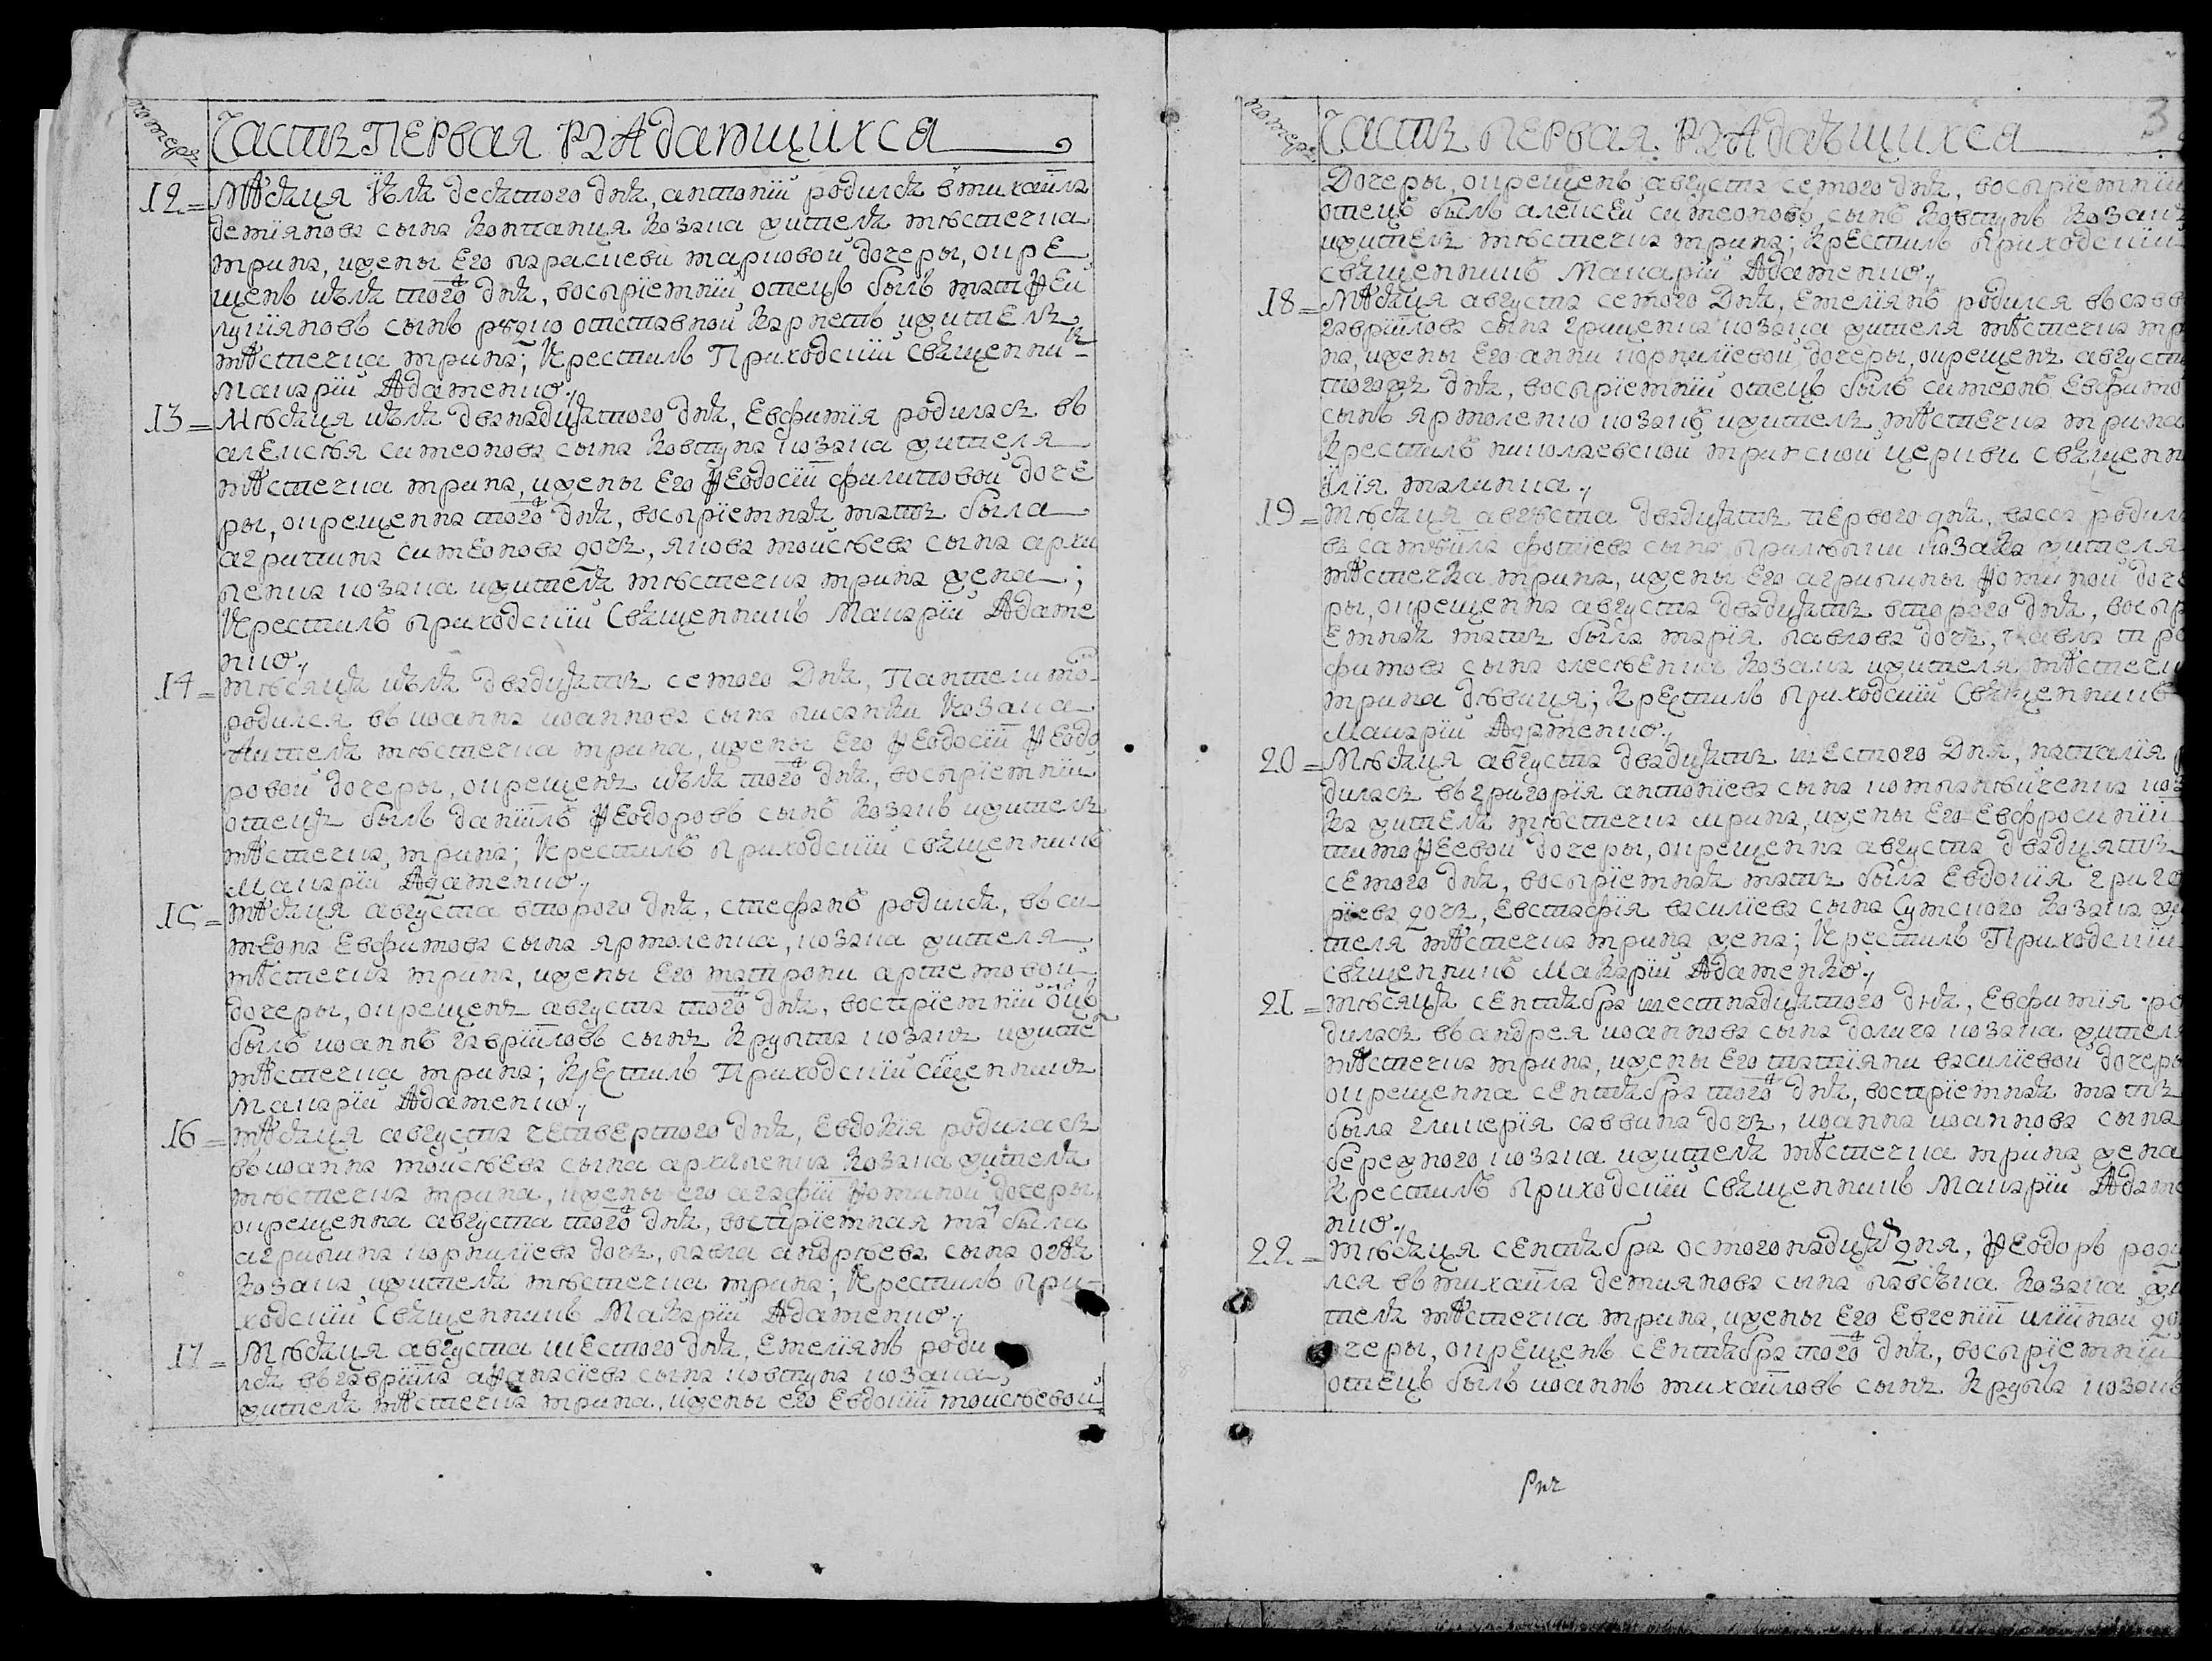 номеръ
Часть первая раждающихся
12 = Мѣсяця июля десятого дня, антоній родился в михаила
демїянова сына коптанця козака жителя мѣстечка
ирина, ижены его параскеви марковой дочеры, окре
щенъ июля того ж дня, воспрїемній отецъ былъ матѳеи
лукїяновъ сынъ отставной жители
мѣстечка ирина; крестилъ Приходскій священник
Макарїй Адаменко./
13 = Мѣсяця июля дванадцятого дня, Евфимїя родилась въ
алеѯѣя симеонова сына ковтуна козака жителя
мѣстечка ирина, ижены его Ѳеодосїи филиповой доче
ры, окрещенна того ж дня, воспрїемная мать была
агрипина симеонова дочь, якова мойсѣева сына архи
пенка козака жителя мѣстечка ирина жена;
Крестилъ приходскїй Священникъ Макарїй Адаме
нко./
14 = мѣсяця июля двадцять семого Дня, Пантелимо
родился въ иоанна иоаннова сына писанки Козака
Жителя мѣстечка ирина, ижены его Ѳеодосїи Ѳеодо
ровой дочеры, окрещенъ июля того ж дня, воспрїемнїй
отецъ былъ данїилъ Ѳеодоровъ сынъ козакъ житель
мѣстечка ирина; Крестилъ приходскїй священникъ
Макарїй Адаменко./
15 = мѣсяця августа второго дня, стефанъ родился, въ си
меона Евфимова сына ярмоленка, козака жителя
мѣстечка ирина, ижены его матрони артемовой
дочеры, окрещенъ августа того ж дня, воспрїемнїй оцъ
былъ иоаннъ гаврїиловъ сынъ Крупка козакъ жите
мѣстечка ирина; Крестилъ Приходскїй сщенникъ
Макарїй Адаменко./
16 = мѣсяця августа четвертого дня, Евдокїя родилась
въ иоанна мойсѣева сына архипенка козака жителя
мѣстечка ирина, ижены его агафїи Ѳоминой дочеры,
окрещенна августа того ж дня, воспрїемная мать была
агрипина корнилїева дочь, павла андрѣева сына
козака жителя мѣстечка ирина; Крестилъ при
ходскїй Священникъ Макарїй Адаменко./
17 = Мѣсяця августа шестого дня, Емелїянъ роди
лся въ гаврїила аѳанасїева сына ковтуна козака,
жителя мѣстечка ирина, ижены его Евдокїи мойсѣевой
номеръ
Часть первая раждающихся
3
Дочеры, окрещенъ августа семого дня, воспрїемнїи
отецъ былъ алеѯѣй симеоновъ сынъ ковтунъ козакъ
житель мѣстечка ирина; Крестилъ Приходскїй
священникъ Макарїй Адаменко./
18 = Мѣсяця августа семого Дня, Емелїянъ родился въ
гаврїилова сына гриценка козака жителя мѣстечка ир
на, ижены его анни корнилїевой дочеры, окрещенъ августа
того ж дня, воспрїемнїй отецъ былъ симеонъ Евфимо
сынъ ярмоленко козакъ житель мѣстечка ирина
Крестилъ николаевской иринской церкви священн
илїя малинка./
19 = мѣсяця августа двадцять первого дня, васса родил
въ самѣила фотїева сына козака жителя
мѣстечка ирина, ижены его агрипины Ѳоминой доче
ры, окрещенна августа двадцять второго дня, воспр
емная мать была марїя павлова дочь, павла тро
фимова сына козака жителя мѣстечк
ирина дѣвиця; Крестилъ приходскїй Священникъ
Макарїй Адаменко./
20 = Мѣсяця августа двадцять шестого Дня, наталїя р
дилась въ григорїя антонїева сына коз
ка жителя мѣстечка ирина, ижены его Евфросинїи
тимоѳеевой дочеры, окрещенна августа двадцять
семого дня, воспрїемная мать была Евдокїя григо
рїева дочь, Евстафїя василїева сына Сумского козака жи
теля мѣстечка ирина жена; Крестилъ Приходскїй
священникъ Макарїй Адаменко./
21 = мѣсяця сентября шестнадцятого дня, Евфимїя ро
дилась въ андрея иоаннова сына долига козака жител
мѣстечка ирина, ижены его татїяни василїевой дочеры
окрещенна сентября того ж дня, воспрїемная мать
была гликерїя саввина дочь, иоанна иоаннова сына
бережного козака жителя мѣстечка ирина жена
Крестилъ приходскїй Священникъ Макарїй Адаме
нко./
22 = мѣсяця сентября осмогонадцять дня, Ѳеодоръ роди
лся въ михаила демїянова сына козака жи
теля мѣстечка ирина, ижены его Евгенїи илїиной до
черы, окрещенъ сентября того ж дня, воспрїемнїй
отецъ былъ иоаннъ михайловъ сынъ Крупка козакъ